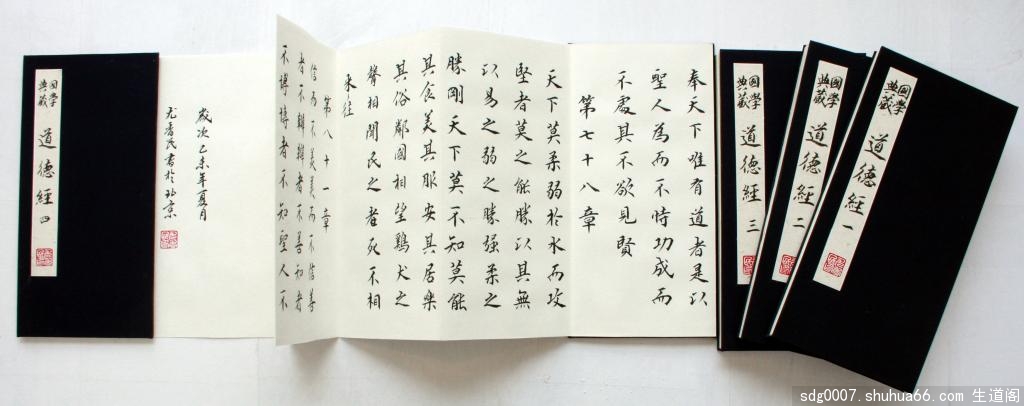 國學典藏
道德經 一
國學典藏
道德經 二
國學典藏
道德經 三
奉天下唯有道者是以
聖人為而不恃功成而
不處其不欲見賢
第七十八章
天下莫柔弱於水而攻
堅者莫之能勝以其無
以易之弱之勝强柔之
勝剛天下莫不知莫能
其食美其服安其居樂
其俗鄰國相望鷄犬之
聲相聞民之老死不相
来往
第八十一章
信而不美美而不信善
者不辯辯者不善知者
不博博者不知聖人不
歲次乙未年夏月
氏書於北京
國學典藏
道德經 四
sdg0007.shuhua66.com 生道阁